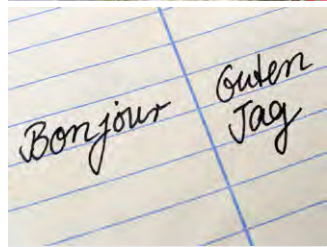 Bonjour
Guten
Tag